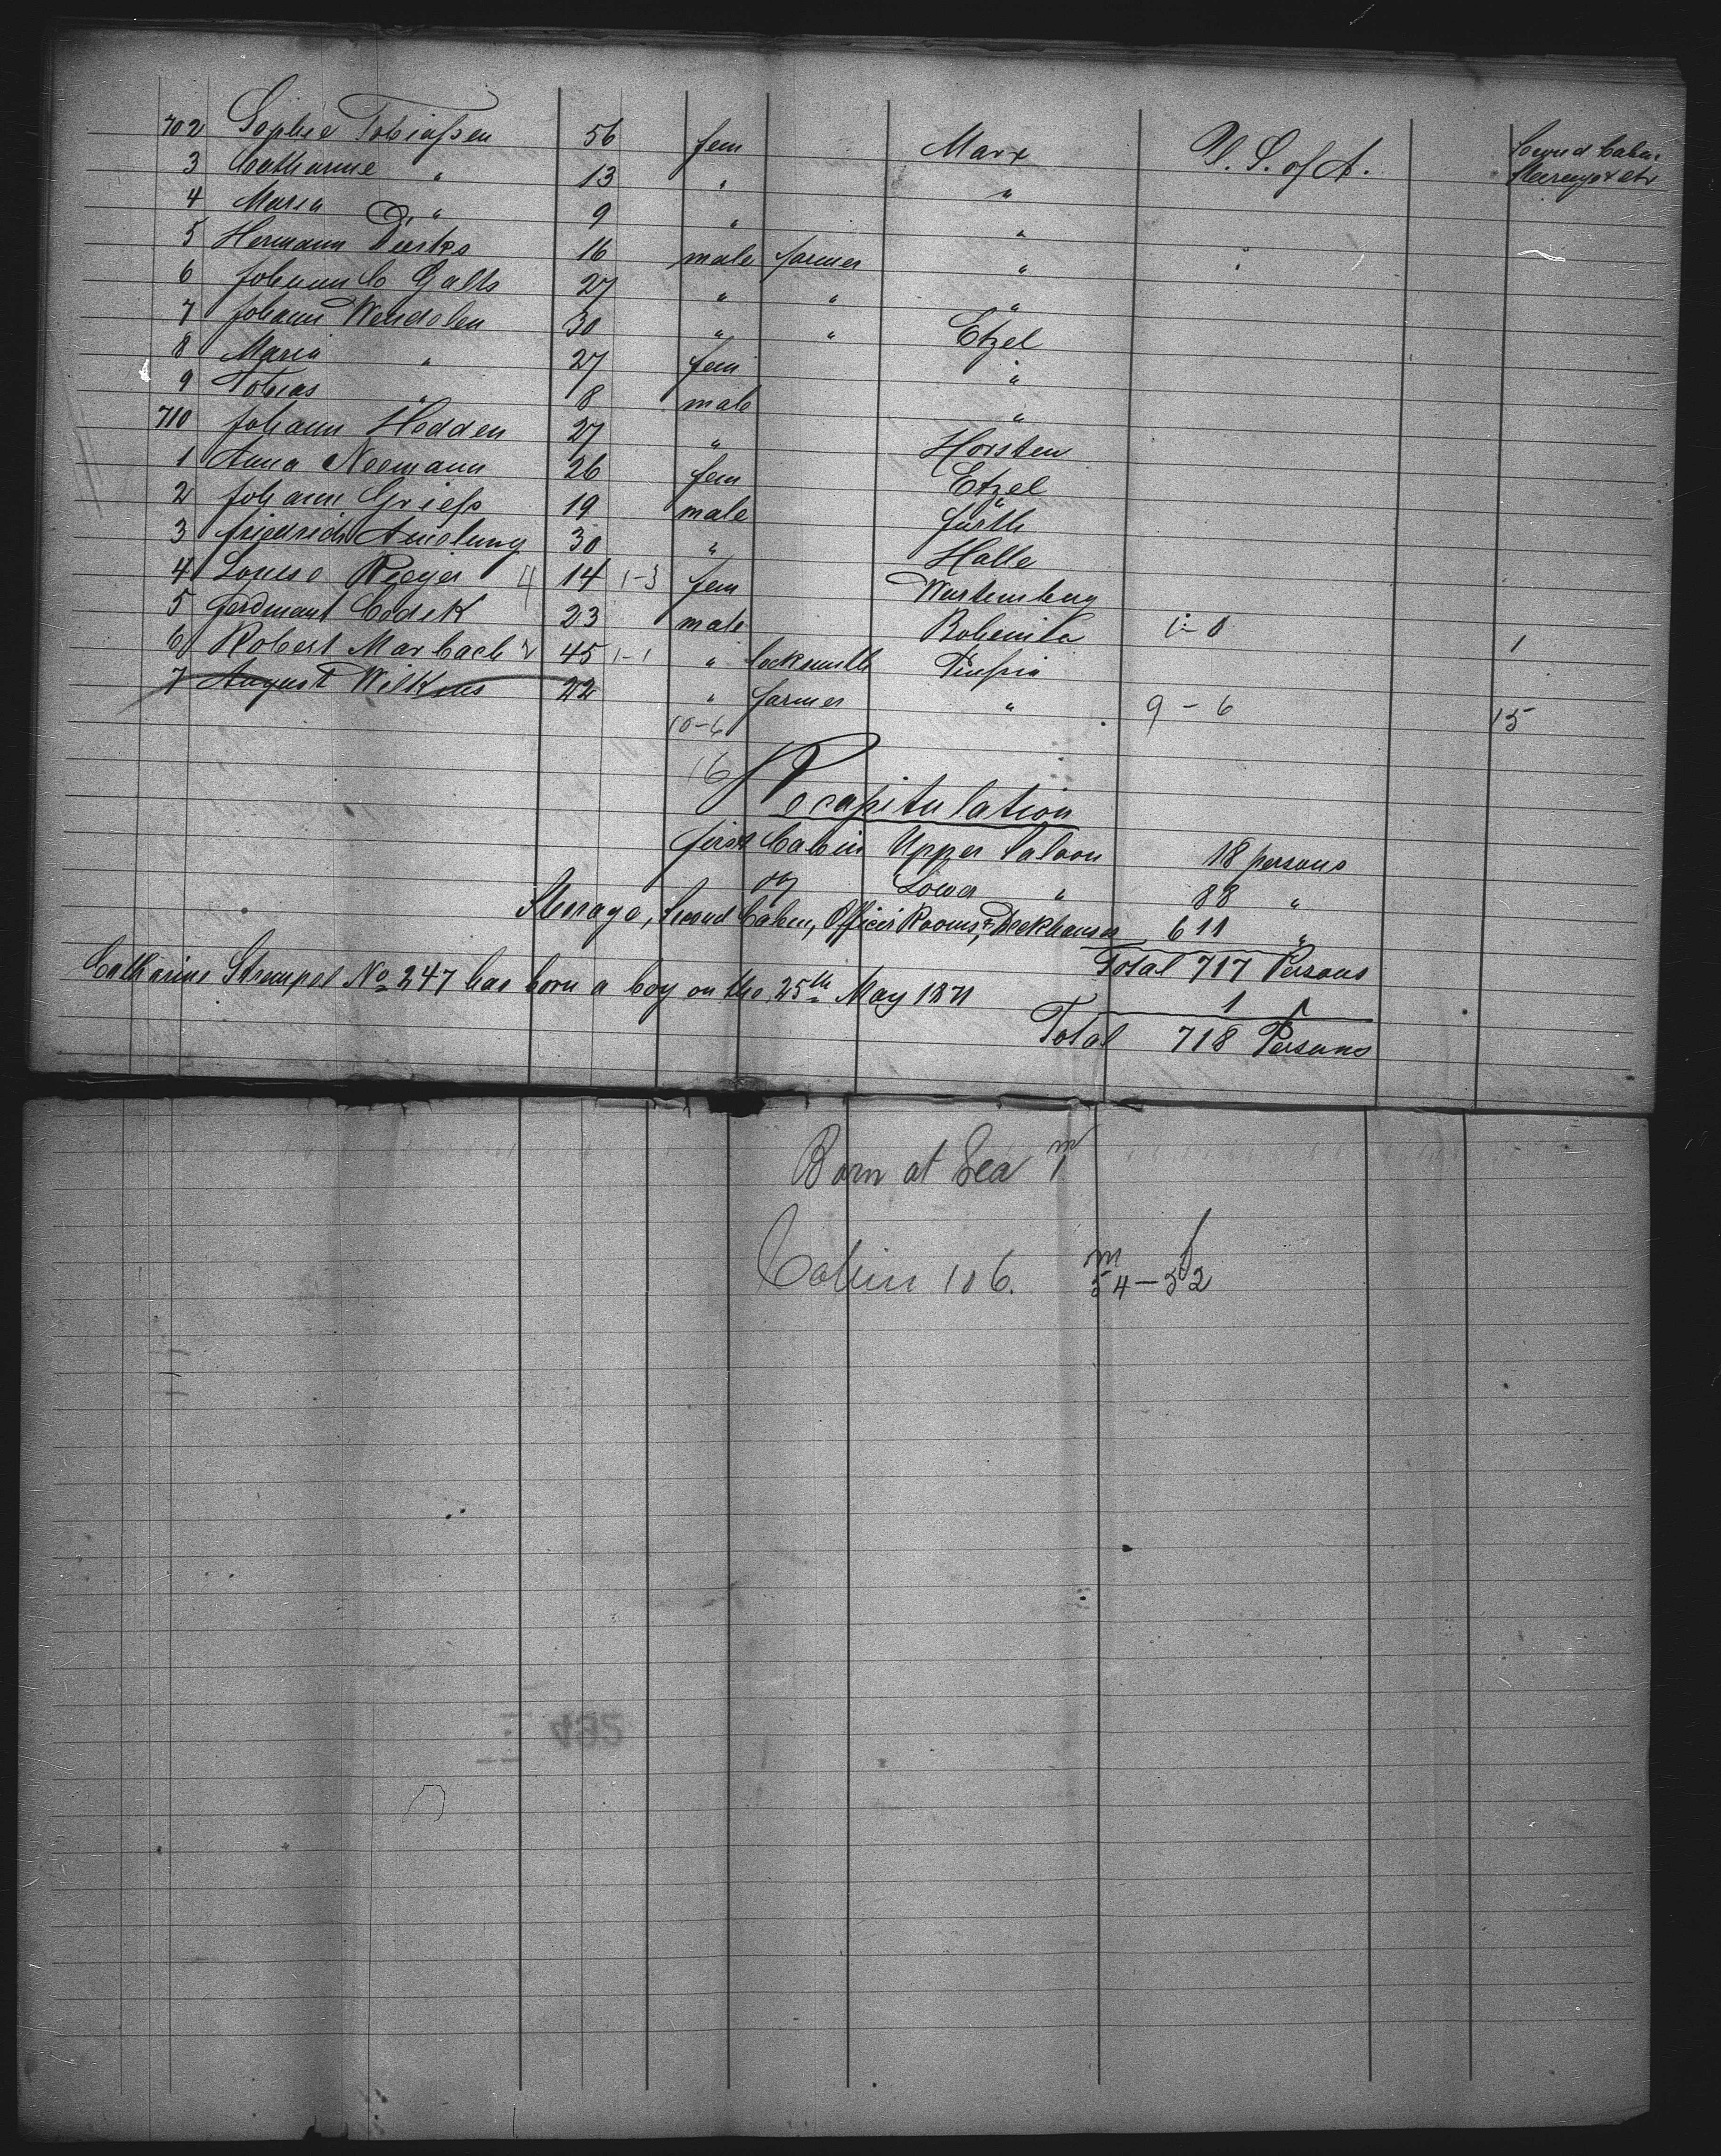 702 Sophie Tobiassen 56 fem Marx U. S. of A. Second Cabin
3 Catharine " 13 " "
4 Maria " 9 " "
5 Hermann Dierks 16 male farmer "
6 Johann C Galts 27 " " "
7 Johann Wendelen 30 " " Etzel
8 Maria " 27 fem "
9 Tobias " 8 male "
710 Johann Hedden 27 " Horsten
1 Anna Neemann 26 fem Etzel
2 Johann Griess 19 male Fürth
3 Friedrich Amelung 30 " Halle
4 Louise 4 14 1-3 fem Wurtemberg
5 Ferdinant 23 male Bohemia 1-0 1
6 Robert Marbach 2 45 1-1 " locksmith Prussia
7 August Wilkens 22 " farmer " 9-6 15
10-6
16
Recapitulation
First Cabin Upper Saloon 18 persons
Lower " 88 "
Steerage, Second Cabin, Officer Rooms, Deckhouses 611 "
Total 717 Persons
Catharine Strempel No 247 has born a boy on the 25th May 1871 1
Total 718 Persons
Born at Sea m 1
Cabin 106. m 54 - f 52